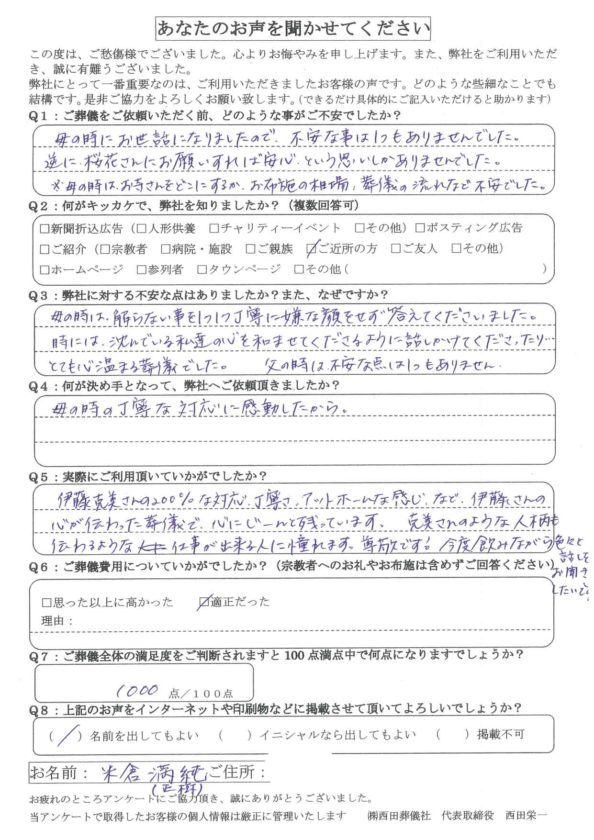 あなたのお声を聞かせてください
この度は、ご愁傷様でございました。心よりお悔やみを申し上げます。また、弊社をご利用いただ
き、誠に有難うございました。
弊社にとって一番重要なのは、ご利用いただきましたお客様の声です。どのような些細なことでも
結構です。是非ご協力をよろしくお願い致します。(できるだけ具体的にご記入いただけると助かります)
Q1：ご葬儀をご依頼いただく前、どのような事がご不安でしたか？
母の時にお世話になりましたので、不安な事は1つもありませんでした。
逆に、桜花さんにお願いすれば安心、という思いしかありませんでした。
※母の時は、お寺さんをどこにするか、お布施の相場、葬儀の流れなど不安でした。
Q2：何がキッカケで、弊社を知りましたか？（複数回答可）
□新聞折込広告（□人形供養 □チャリティーイベント □その他）□ポスティング広告
□ご紹介（□宗教者 □病院・施設 □ご親族 ☑ご近所の方 □ご友人 □その他）
□ホームページ □参列者 □タウンページ □その他（ ）
Q3：弊社に対する不安な点はありましたか？また、なぜですか？
母の時は、解らない事を1つ1つ丁寧に嫌な顔をせず答えてくださいました。
時には、沈んでいる私達の心を和ませてくださるように話しかけてくださったり…
とても心温まる葬儀でした。 父の時は不安な点は1つもありません。
Q4：何が決め手となって、弊社へご依頼頂きましたか？
母の時の丁寧な対応に感動したから。
Q5：実際にご利用頂いていかがでしたか？
伊藤克美さんの200%な対応、丁寧さ、アットホームな感じ、など、伊藤さんの
心が伝わった葬儀で、心にじーんと残っています。 克美さんのような人柄も
伝わるような仕事が出来る人に憧れます。尊敬です！今度飲みながら色々と
話しを
お聞き
したいです
Q6：ご葬儀費用についていかがでしたか？（宗教者へのお礼やお布施は含めずご回答ください）
□思った以上に高かった ☑適正だった
理由：
Q7：ご葬儀全体の満足度をご判断されますと100点満点中で何点になりますでしょうか？
1000 点/100点
Q8：上記のお声をインターネットや印刷物などに掲載させて頂いてよろしいでしょうか？
（／）名前を出してもよい （ ）イニシャルなら出してもよい （ ）掲載不可
お名前：米倉 満純 ご住所：
(正樹)
お疲れのところアンケートにご協力頂き、誠にありがとうございました。
当アンケートで取得したお客様の個人情報は厳正に管理いたします ㈱西田葬儀社 代表取締役 西田栄一